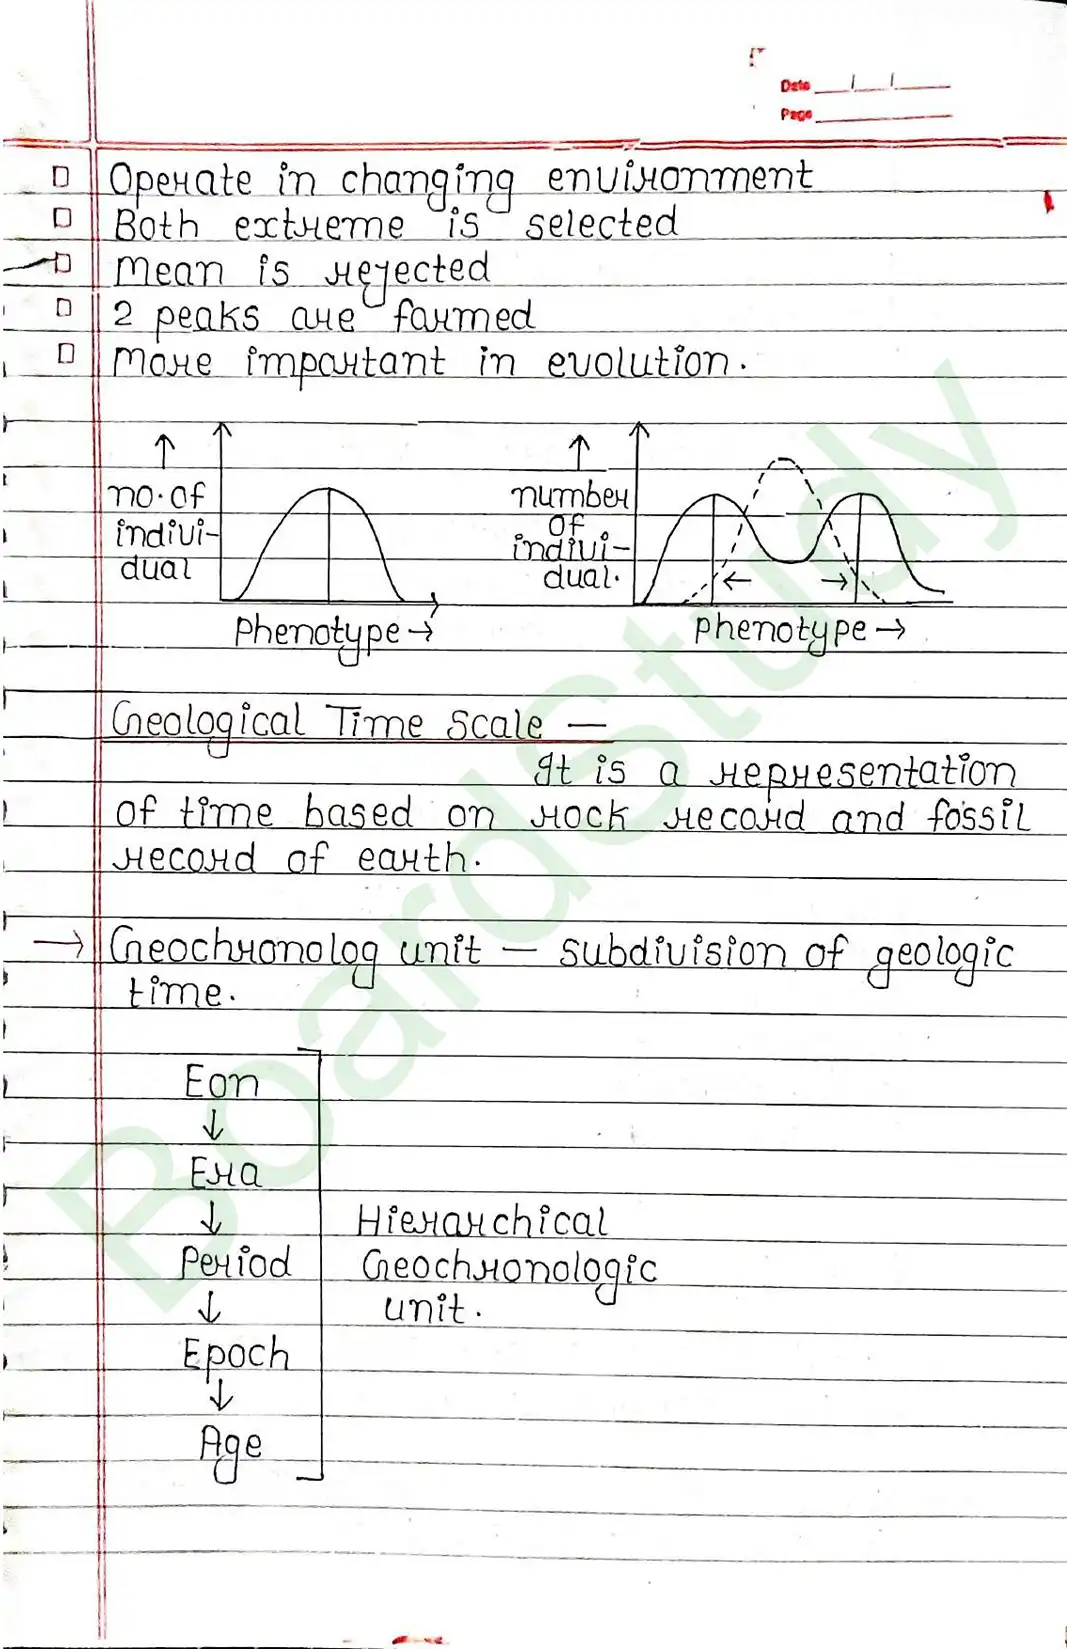 Date
Page
Operate in changing environment
Both extreme is selected
Mean is rejected
2 peaks are formed
More important in evolution.
no. of
indivi-
dual
Phenotype →
number
of
indivi-
dual.
Phenotype →
Geological Time Scale —
It is a representation
of time based on rock record and fossil
record of earth.
→ Geochronolog unit — subdivision of geologic
time.
Eon
↓
Era
↓
Period
↓
Epoch
↓
Age
Hierarchical
Geochronologic
unit.
BoardStudy